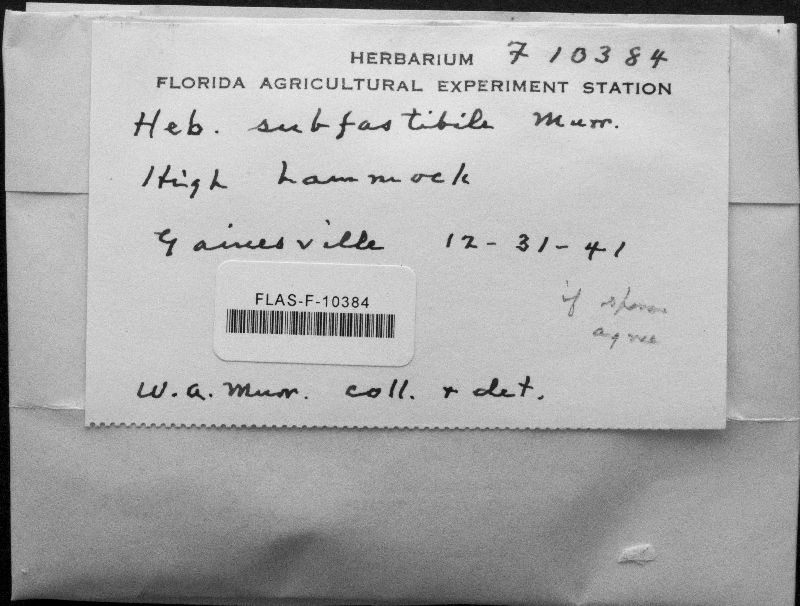 HERBARIUM F 10384
FLORIDA AGRICULTURAL EXPERIMENT STATION
Heb. subfastibile Murr.
High hammock
Gainesville 12-31-41
FLAS-F-10384
if spores
agree
W.A. Murr. coll. + det.